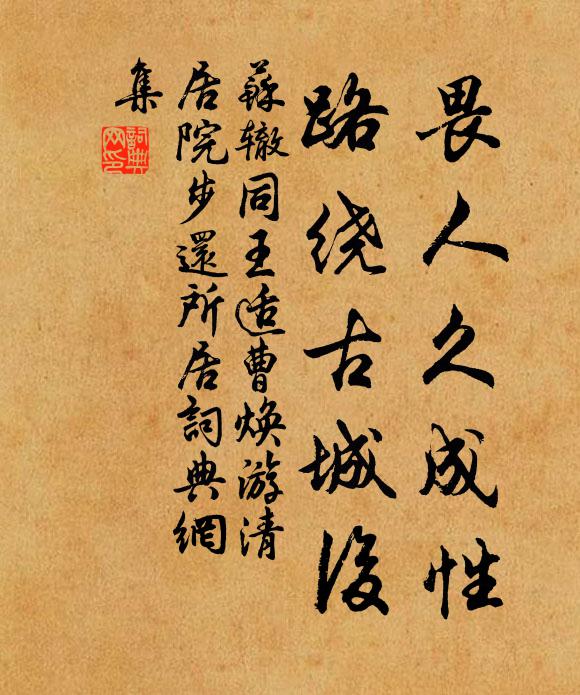 畏人久成性
路绕古城後
蘇辙同王适曹焕游清
居院步還所居詞典網
集
詞典网印